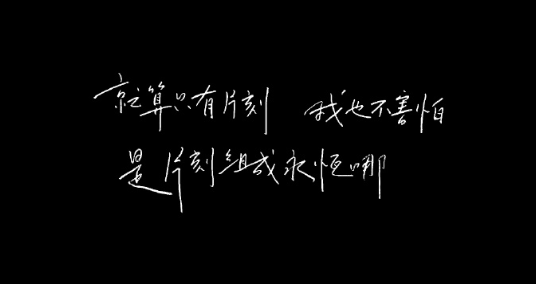 就算只有片刻 我也不害怕
是片刻组成永恒哪